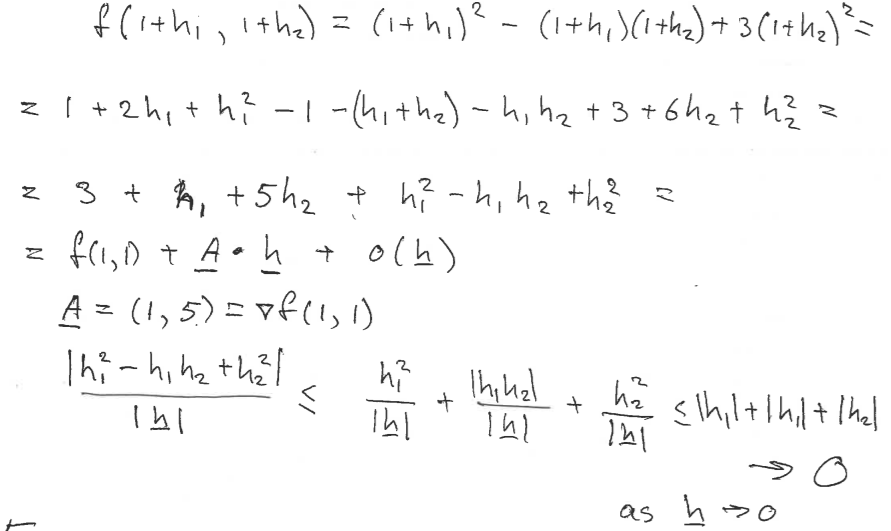 f(1+h₁, 1+h₂) = (1+h₁)² - (1+h₁)(1+h₂) + 3(1+h₂)² =
= 1 + 2h₁ + h₁² - 1 - (h₁+h₂) - h₁h₂ + 3 + 6h₂ + h₂² =
= 3 + h₁ + 5h₂ + h₁² - h₁h₂ + h₂² =
= f(1,1) + A • h + o(h)
A = (1, 5) = ∇f(1, 1)
|h₁² - h₁h₂ + h₂²| / |h| ≤ h₁² / |h| + |h₁h₂| / |h| + h₂² / |h| ≤ |h₁| + |h₁| + |h₂|
→ 0
as h → 0